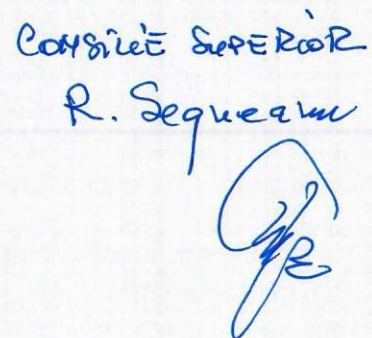 CONSILIE SUPERIOR
R. Segneanu